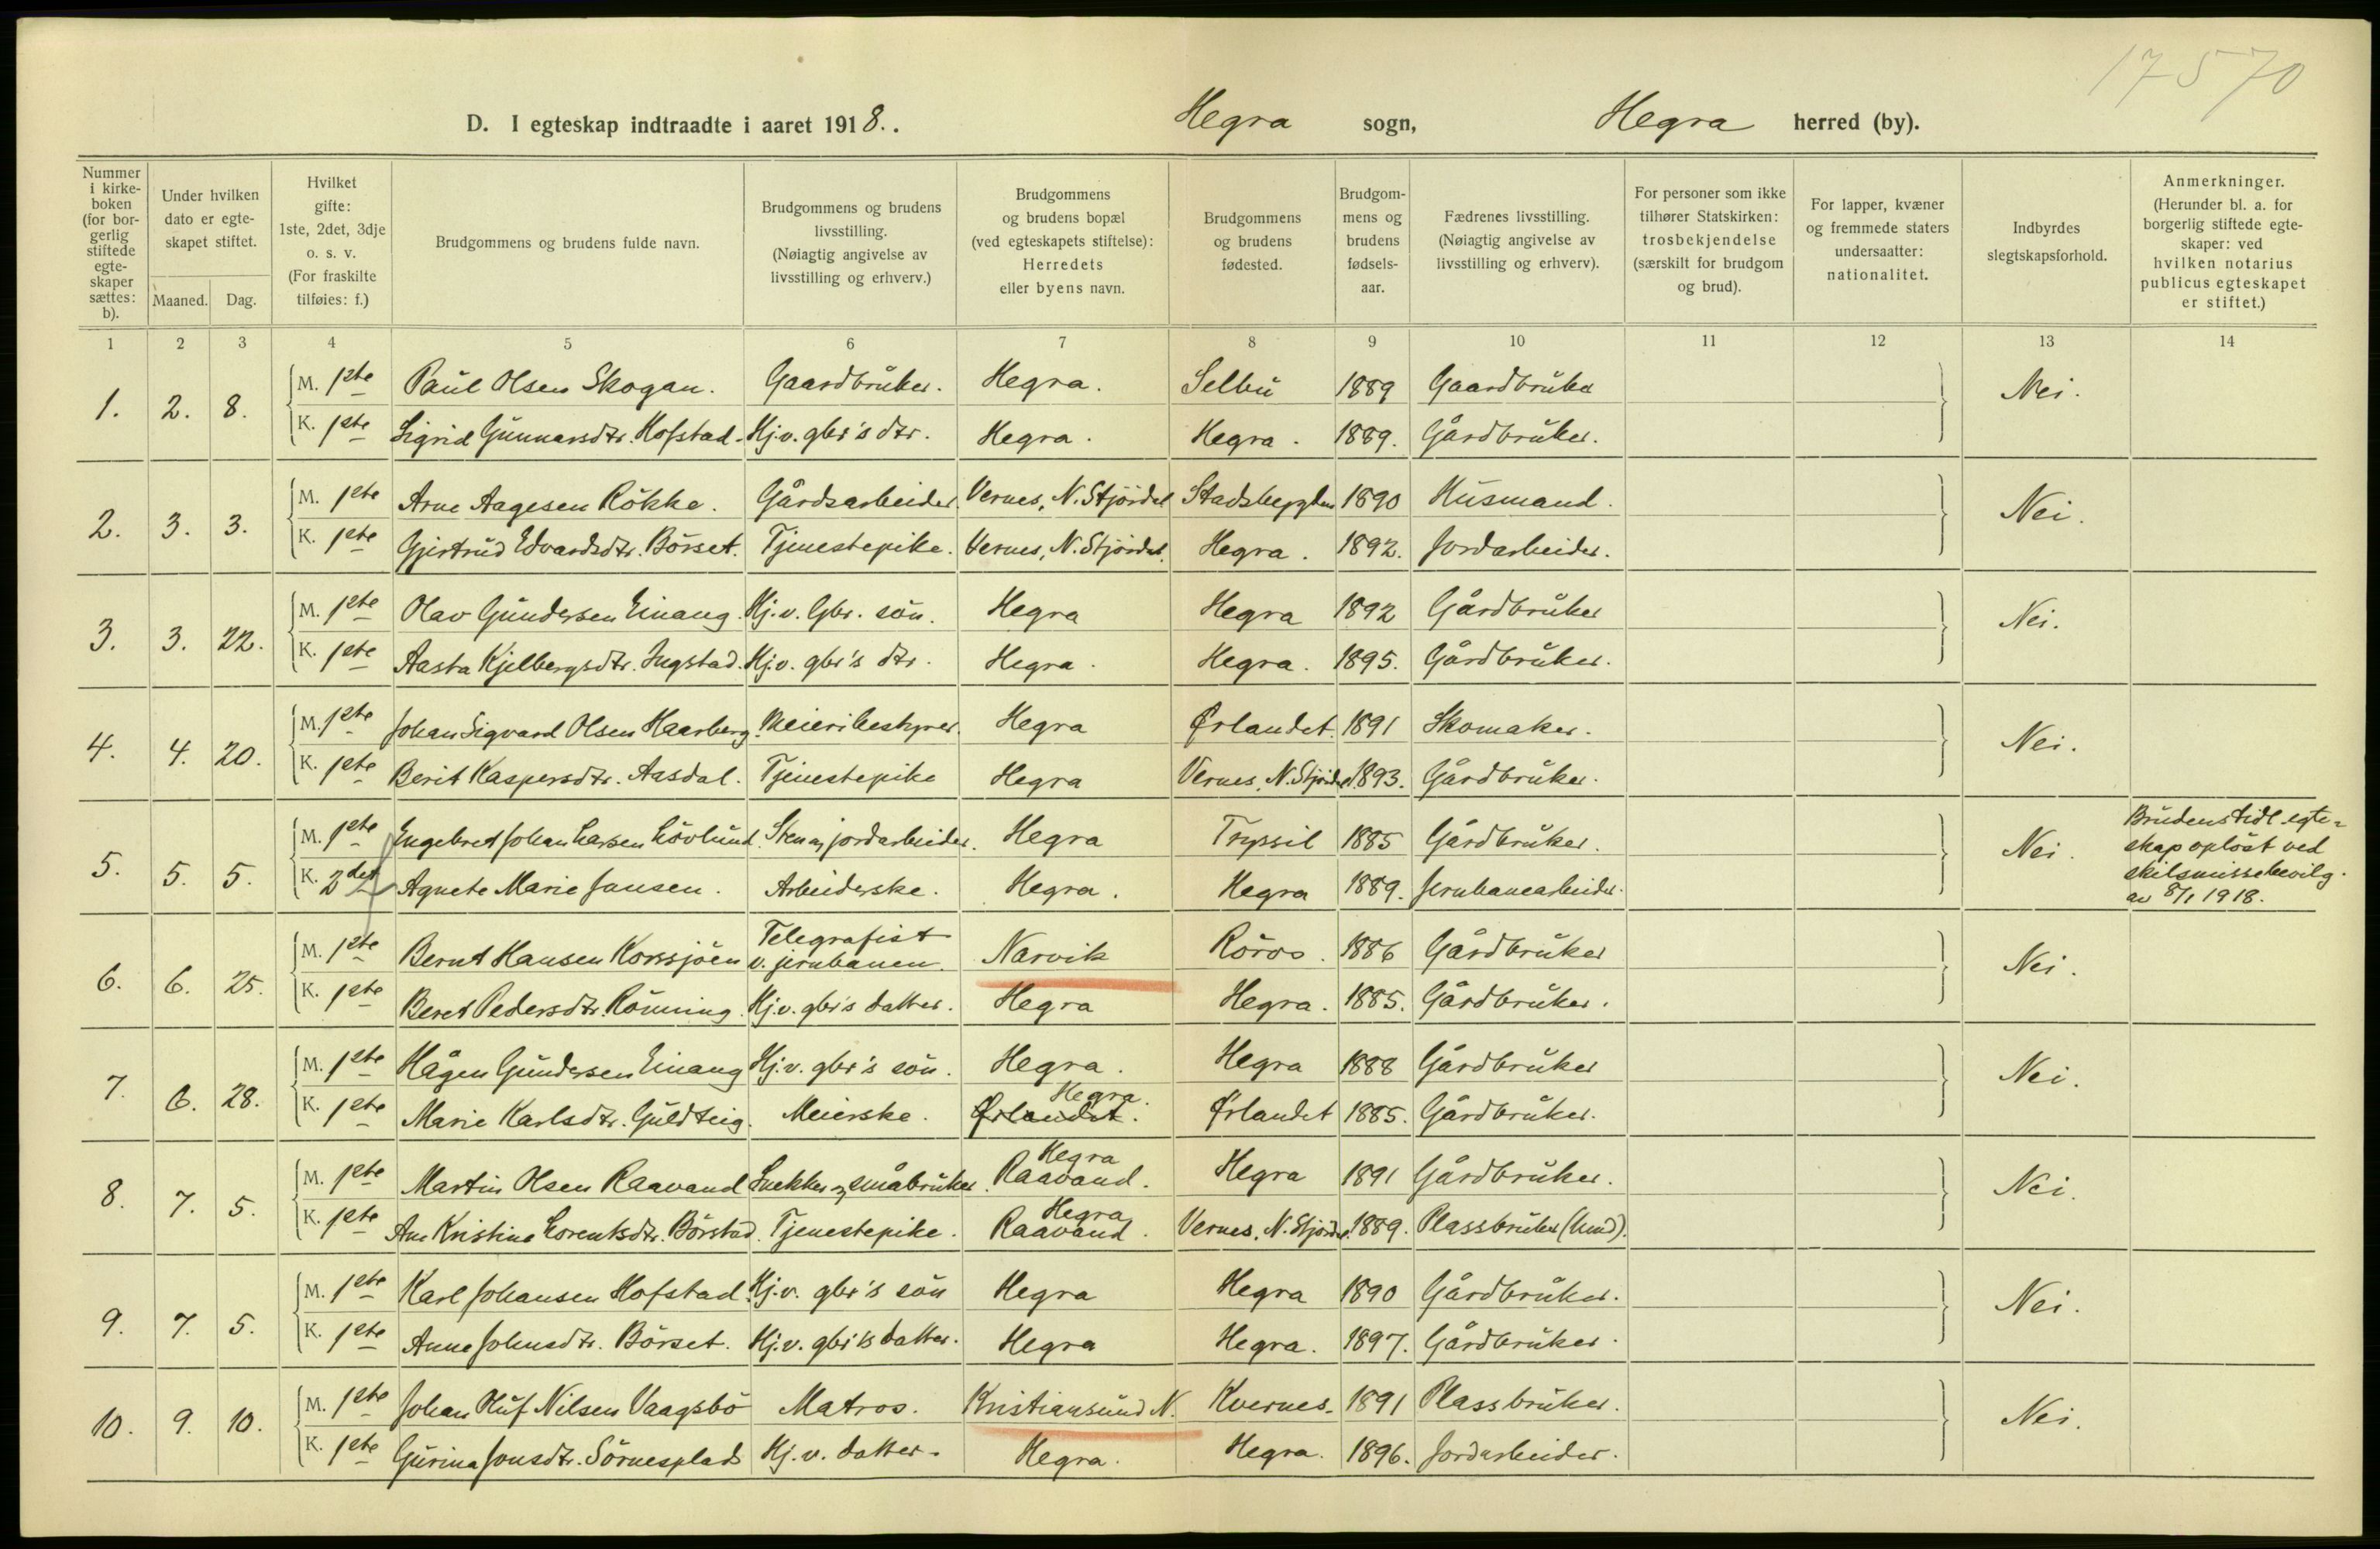 17570
D. I egteskap indtraadte i aaret 1918. . Hegra sogn, Hegra herred (by).
Nummer i kirke-boken (for bor-gerlig stiftede egte-skaper sættes: b).
Under hvilken dato er egte-skapet stiftet.
Maaned. Dag.
Hvilket gifte: 1ste, 2det, 3dje o. s. v. (For fraskilte tilføies: f.)
Brudgommens og brudens fulde navn.
Brudgommens og brudens livsstilling. (Nøiagtig angivelse av livsstilling og erhverv.)
Brudgommens og brudens bopæl (ved egteskapets stiftelse): Herredets eller byens navn.
Brudgommens og brudens fødested.
Brudgom-mens og brudens fødsels-aar.
Fædrenes livsstilling. (Nøiagtig angivelse av livsstilling og erhverv).
For personer som ikke tilhører Statskirken: trosbekjendelse (særskilt for brudgom og brud).
For lapper, kvæner og fremmede staters undersaatter: nationalitet.
Indbyrdes slegtskapsforhold.
Anmerkninger. (Herunder bl. a. for borgerlig stiftede egte-skaper: ved hvilken notarius publicus egteskapet er stiftet.)
1 2 3 4 5 6 7 8 9 10 11 12 13 14
1. 2. 8. M. 1ste Paul Olsen Skogan. Gaardbruker. Hegra. Selbu 1889 Gaardbruker Nei.
K. 1ste Sigrid Gunnarsdtr. Hofstad. Hj.v. gbr's dtr. Hegra. Hegra. 1889. Gårdbruker.
2. 3. 3. M. 1ste Arne Aagesen Rökke. Gårdsarbeider. Vernes, N. Stjördal Stadsbygden 1890 Husmand. Nei.
K. 1ste Gjertrud Edvardsdtr. Börset. Tjenestepike. Vernes, N. Stjördal. Hegra. 1892. Jordarbeider.
3. 3. 22. M. 1ste Olav Gundersen Einang. Hj.v. Gbr. sön. Hegra Hegra 1892 Gårdbruker Nei.
K. 1ste Aasta Kjelbergsdtr. Ingstad. Hj.v. gbr's dtr. Hegra. Hegra. 1895. Gårdbruker.
4. 4. 20. M. 1ste Johan Sigvard Olsen Haarberg. Meieribestyrer. Hegra Ørlandet. 1891 Skomaker. Nei.
K. 1ste Berit Kaspersdtr. Aasdal. Tjenestepike Hegra Vernes, N. Stjördal 1893. Gårdbruker.
5. 5. 5. M. 1ste Engebret Johan Larsen Lövlund. Sten og jordarbeider. Hegra Trysil 1885 Gårdbruker. Nei. Brudens tidl. egte=
skap oplöst ved
skilsmissebevilg.
av 8/1 1918.
K. 2det Agnete Marie Jansen. Arbeiderske. Hegra. Hegra 1889. Jernbanearbeider.
6. 6. 25. M. 1ste Bernt Hansen Korssjöen Telegrafist v. jernbanen. Narvik Röros. 1886 Gårdbruker Nei.
K. 1ste Beret Pedersdtr. Rönning. Hj.v. gbr's datter. Hegra Hegra. 1885. Gårdbruker.
7. 6. 28. M. 1ste Hågen Gundersen Einang Hj.v. gbr's sön. Hegra. Hegra 1888 Gårdbruker Nei.
K. 1ste Marie Karlsdtr. Guldteig. Meierske. Ørlandet. Hegra. Ørlandet 1885. Gårdbruker.
8. 7. 5. M. 1ste Martin Olsen Raavand Snekker og småbruker. Raavand. Hegra Hegra 1891 Gårdbruker. Nei.
K. 1ste Ane Kristine Lorentsdtr. Börstad. Tjenestepike. Raavand. Hegra Vernes, N. Stjördal. 1889. Plassbruker (Smed).
9. 7. 5. M. 1ste Karl Johansen Hofstad. Hj.v. gbr's sön Hegra Hegra 1890 Gårdbruker. Nei.
K. 1ste Anne Johnsdtr. Börset. Hj.v. gbr's datter. Hegra Hegra. 1897. Gårdbruker.
10. 9. 10. M. 1ste Johan Oluf Nilsen Vaagsbö Matros. Kristiansund N. Kvernes. 1891 Plassbruker. Nei.
K. 1ste Gurina Jonsdtr. Sörnesplads Hj.v. datter. Hegra. Hegra. 1896. Jordarbeider.